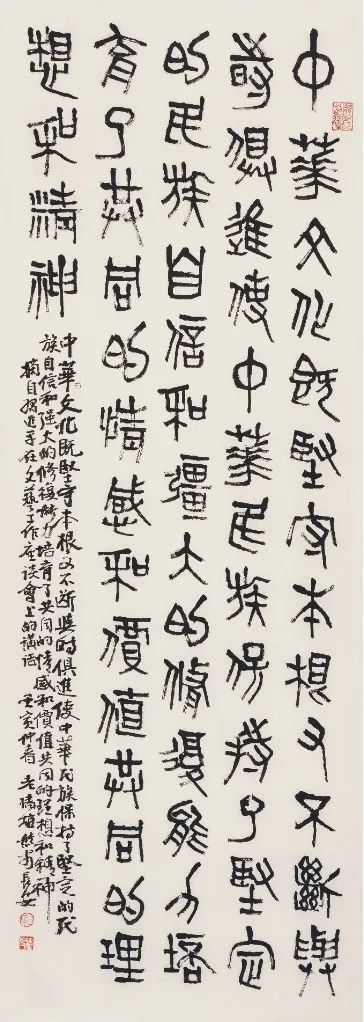 中華文化既堅守本根又不斷與
時俱進使中華民族保持了堅定
的民族自信和彊大的修復能力培
育了共同的情感和價值共同的理
想和精神
中華文化既堅守本根又不断與時俱進使中華民族保持了堅定的民
族自信和强大的修復能力培育了共同的情感和價值共同的理想和精神
摘自習近平在文藝工作座談會上的講話 壬寅仲春 長安